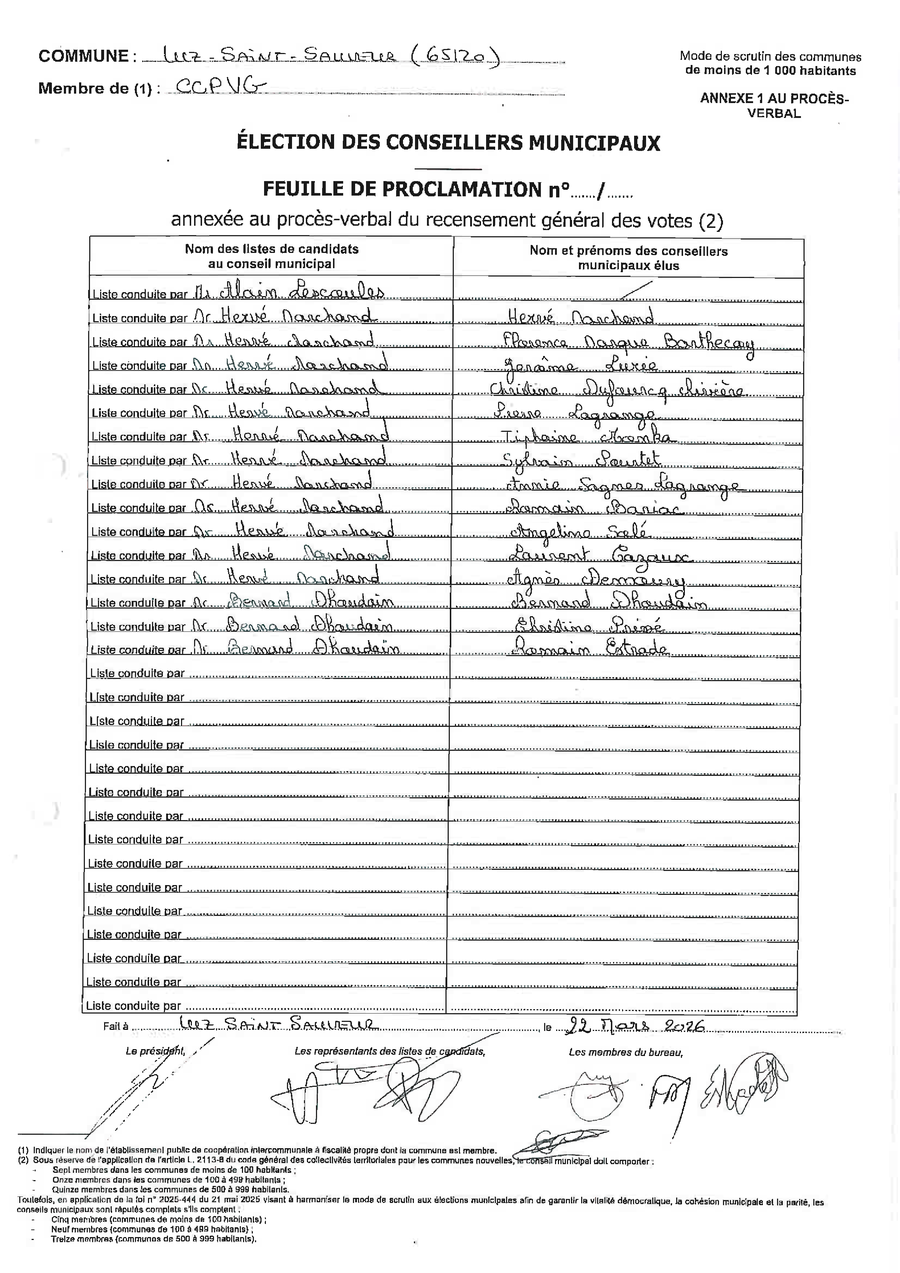 COMMUNE : Luz-Saint-Sauveur (65120)
Mode de scrutin des communes
de moins de 1 000 habitants
Membre de (1) : CCPVG
ANNEXE 1 AU PROCÈS-
VERBAL
ÉLECTION DES CONSEILLERS MUNICIPAUX
FEUILLE DE PROCLAMATION n°....../......
annexée au procès-verbal du recensement général des votes (2)
Nom des listes de candidats
au conseil municipal
Nom et prénoms des conseillers
municipaux élus
Liste conduite par M. Alain Lescoules
Liste conduite par Mr Hervé Marchand Hervé Marchand
Liste conduite par Mr Hervé Marchand Florence Marque Barthecoy
Liste conduite par Mr Hervé Marchand Jérôme Luxie
Liste conduite par Mr Hervé Marchand Christine Dufourcq
Liste conduite par Mr Hervé Marchand Pierre Lagrange
Liste conduite par Mr Hervé Marchand Tiphaine
Liste conduite par Mr Hervé Marchand Sylvain Pourtet
Liste conduite par Mr Hervé Marchand Annie Sagnes Lagrange
Liste conduite par Mr Hervé Marchand Romain Bariac
Liste conduite par Mr Hervé Marchand Angelina Salé
Liste conduite par Mr Hervé Marchand Laurent Cazaux
Liste conduite par Mr Hervé Marchand Agnès Demoury
Liste conduite par Mr Bernard Dhoudain Bernard Dhoudain
Liste conduite par Mr Bernard Dhoudain Christine Privé
Liste conduite par Mr Bernard Dhoudain Romain Estrade
Liste conduite par
Liste conduite par
Liste conduite par
Liste conduite par
Liste conduite par
Liste conduite par
Liste conduite par
Liste conduite par
Liste conduite par
Liste conduite par
Liste conduite par
Liste conduite par
Liste conduite par
Liste conduite par
Liste conduite par
Fait à Luz Saint Sauveur, le 22 Mars 2026
Le président,
Les représentants des listes de candidats,
Les membres du bureau,
(1) Indiquer le nom de l'établissement public de coopération intercommunale à fiscalité propre dont la commune est membre.
(2) Sous réserve de l'application de l'article L. 2113-8 du code général des collectivités territoriales pour les communes nouvelles, le conseil municipal doit comporter :
- Sept membres dans les communes de moins de 100 habitants ;
- Onze membres dans les communes de 100 à 499 habitants ;
- Quinze membres dans les communes de 500 à 999 habitants.
Toutefois, en application de la loi n° 2025-444 du 21 mai 2025 visant à harmoniser le mode de scrutin aux élections municipales afin de garantir la vitalité démocratique, la cohésion municipale et la parité, les
conseils municipaux sont réputés complets s'ils comptent :
- Cinq membres (communes de moins de 100 habitants) ;
- Neuf membres (communes de 100 à 499 habitants) ;
- Treize membres (communes de 500 à 999 habitants).